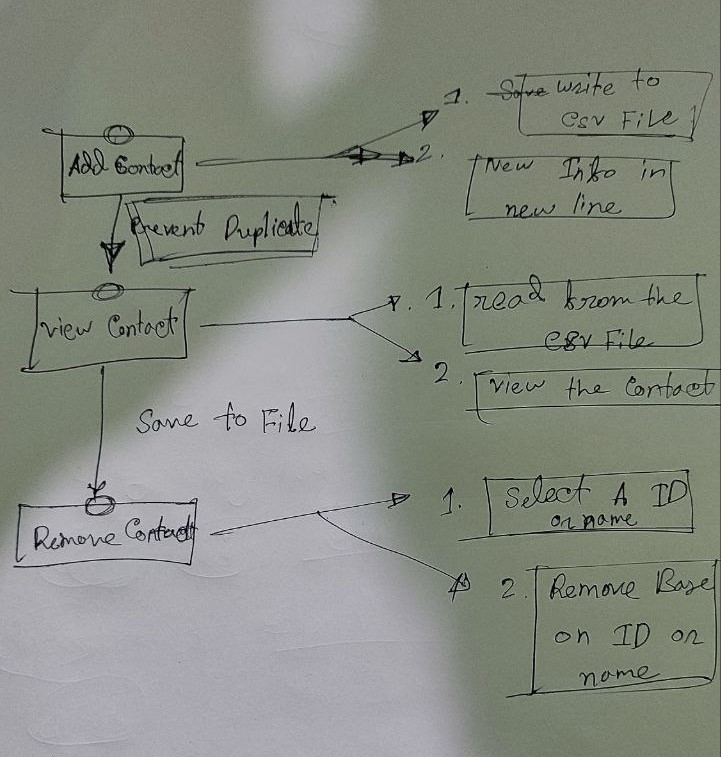 1. Save write to
csv File
Add Contact
2. New Info in
new line
Prevent Duplicate
View Contact
1. read from the
csv File
2. View the Contact
Save to File
Remove Contact
1. Select A ID
or name
2. Remove Base
on ID or
name